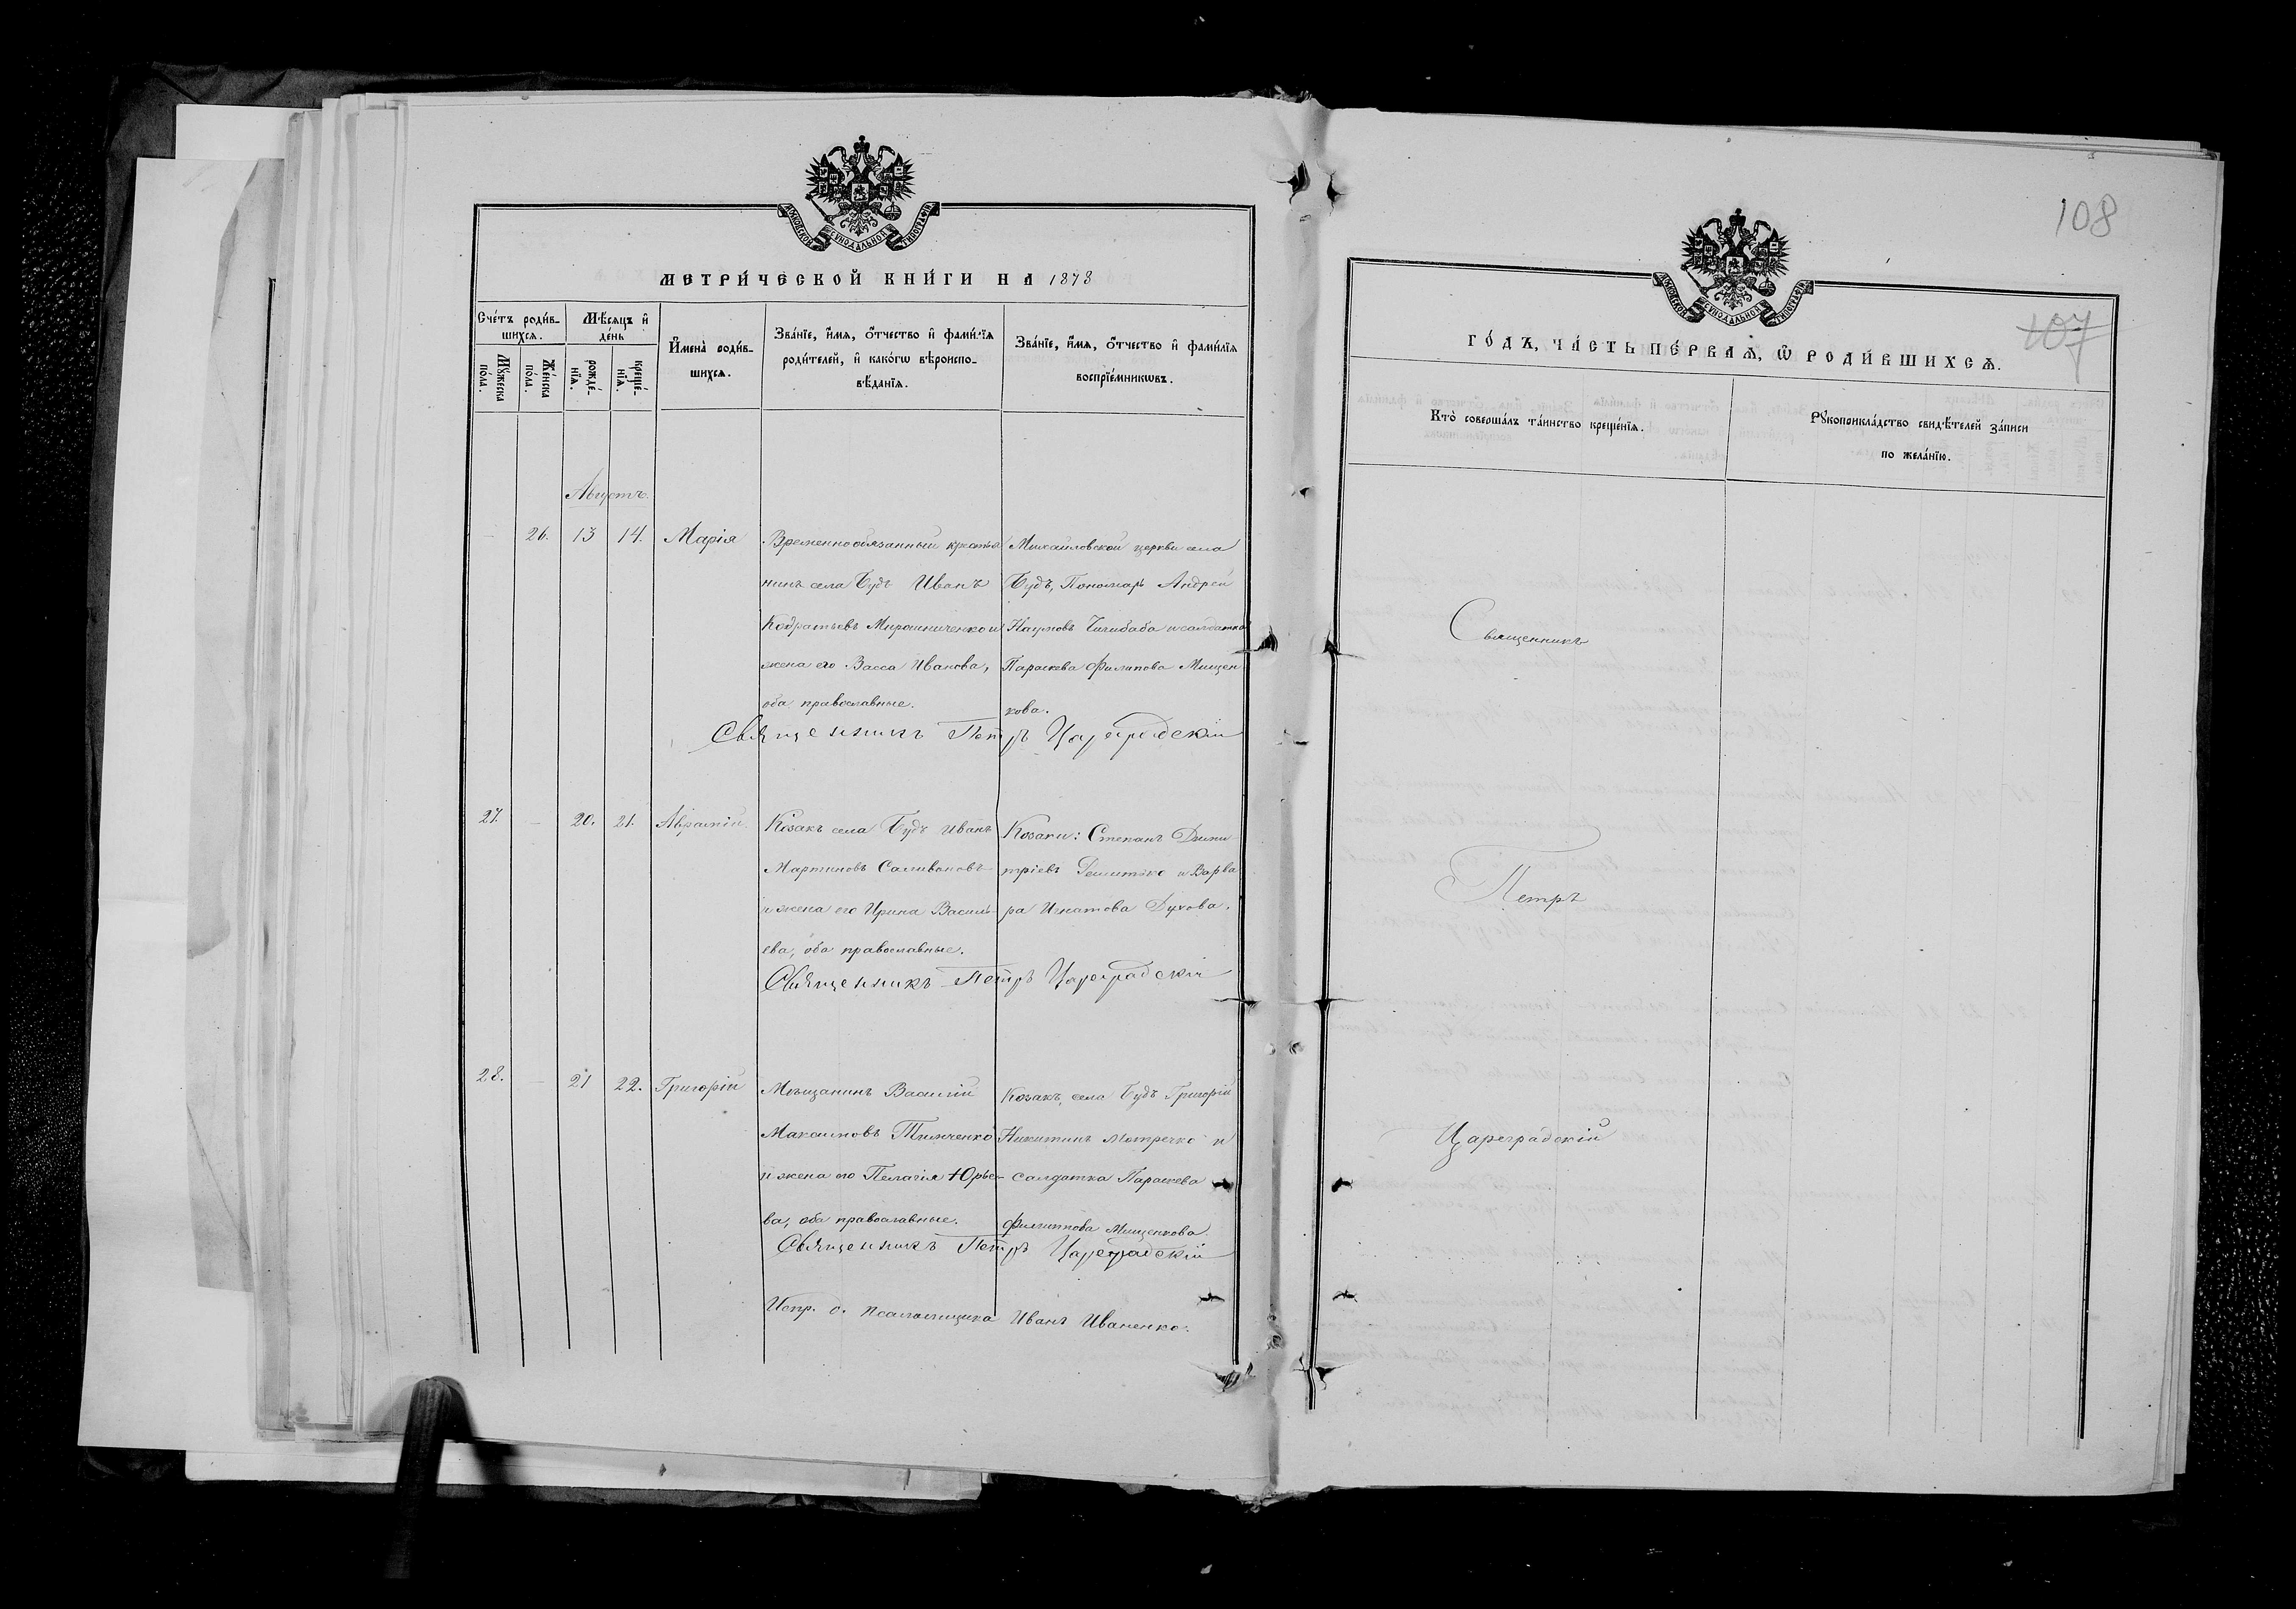 МОСКОВСКОЙ СѴНОДАЛЬНОЙ ТИПОГРАФІИ
МЕТРИ́ЧЕСКОЙ КНИ́ГИ НА 1873
Сче́тъ роди́в-
шихся.
Мѣ́сяцъ и҆
де́нь
Мꙋ́жеска
по́ла.
Же́нска
по́ла.
рожде́-
нїѧ.
креще́-
нїѧ.
И҆мена̀ роди́в-
шихсѧ.
Зва́нїе, и҆́мѧ, ѻ҆́тчество и҆ фами́лїѧ
роди́телей, и҆ како́гѡ вѣроиспо-
вѣ́данїѧ.
Зва́нїе, и҆́мѧ, ѻ҆́тчество и҆ фами́лїѧ
воспрїе́мникѡвъ.
Августъ.
26. 13 14. Марія
Временнообязанный крестья
нинъ села Будъ Иванъ
Кодратьевъ Мирошниченко и
жена его Васса Иванова,
оба православные.
Михаиловской церкви села
Будъ, Пономарь Андрей
Наумовъ Чигибаба и салдатка
Параскева Филипова Мищен
кова.
Священникъ Петръ Цареградскій
27. — 20. 21. Аврамій
Козакъ села Будъ Иванъ
Мартиновъ Саливоновъ
и жена его Ирина Василь-
ева, оба православные.
Козаки: Степанъ Дими
тріевъ Решитько и Варва
ра Игнатова Духова.
Священникъ Петръ Цареградскій
28. — 21 22. Григорій
Мѣщанинъ Василій
Максимовъ Тимченко
и жена его Пелагія Юрье-
ва, оба православные.
Козакъ села Будъ Григорій
Никитинъ Мотречко и
салдатка Параскева
Филиппова Мищенкова.
Священникъ Петръ Цареградскій
Испр. д. Псаломщика Иванъ Иваненко.
108
107
МОСКОВСКОЙ СѴНОДАЛЬНОЙ ТИПОГРАФІИ
ГО́ДЪ, ЧА́СТЬ ПЕ́РВАѦ, Ѽ РОДИ́ВШИХСѦ.
Кто̀ соверша́лъ та́инство креще́нїѧ.
Рꙋкоприкла́дство свидѣ́телей за́писи
по жела́нїю.
Священникъ
Петръ
Цареградскій